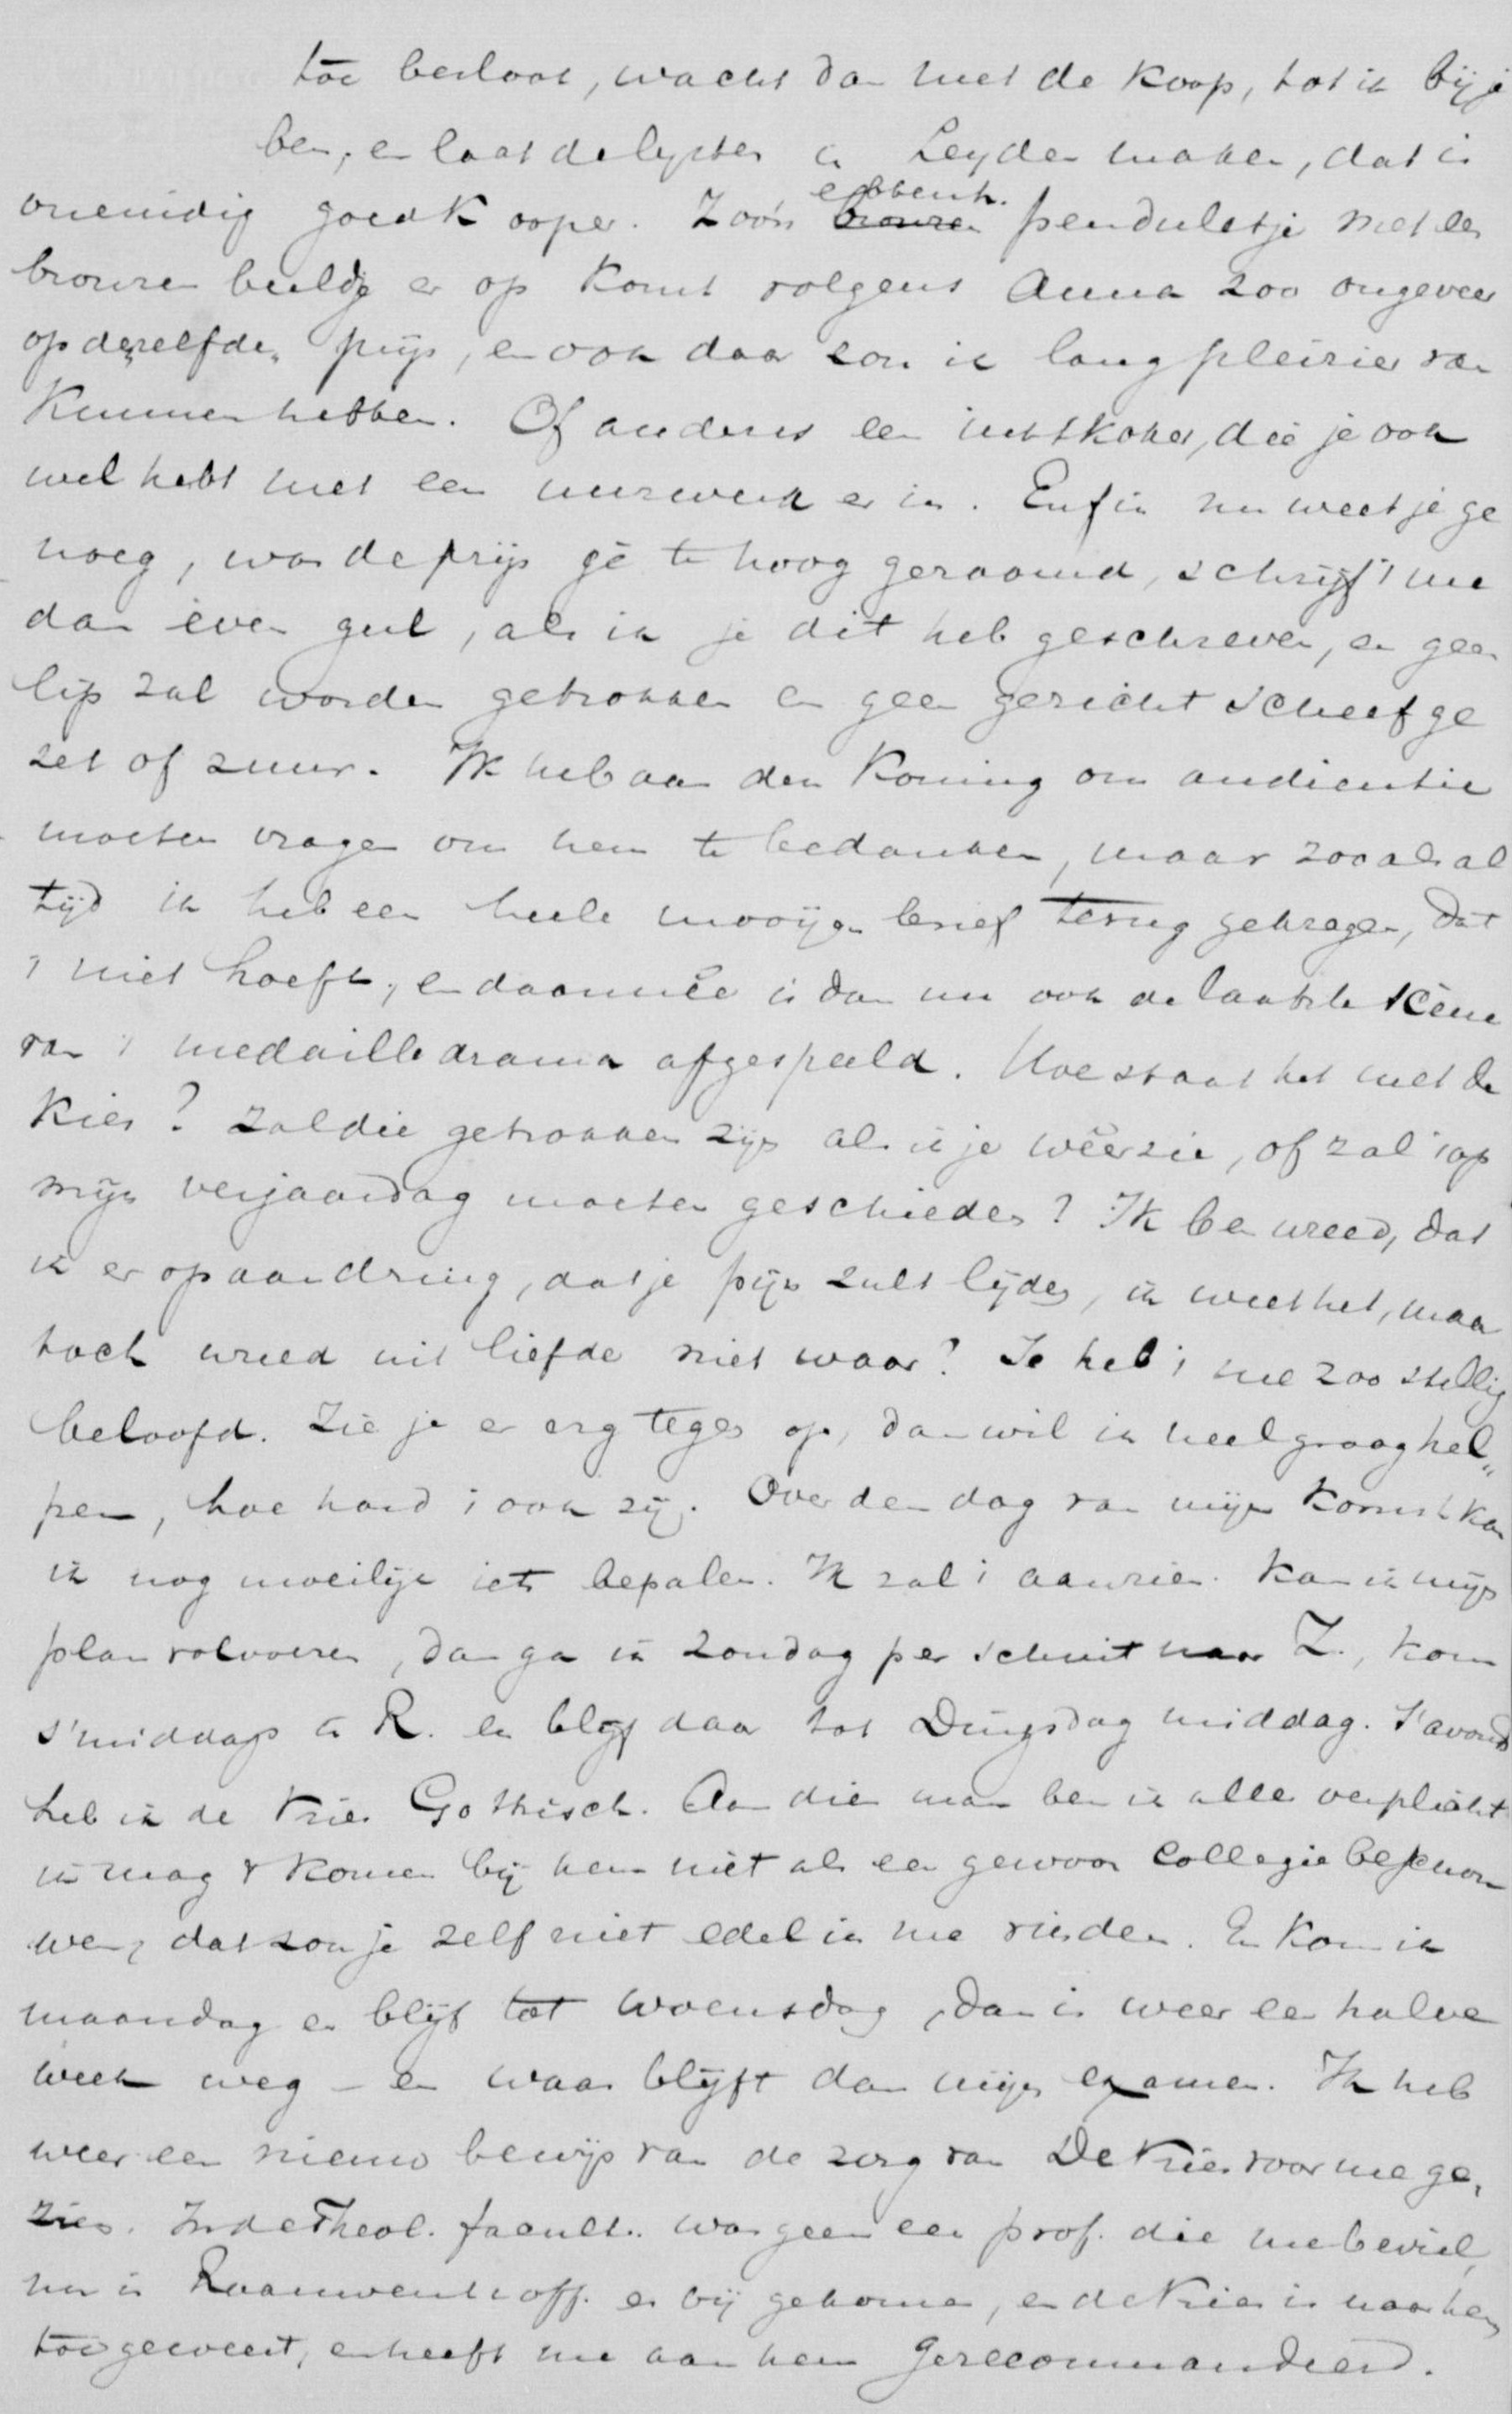 toe besloot, wacht dan met de koop, tot ik bij je
ben, en laat de lysten in Leyden maken, dat is
oneindig goedkooper. Zoo'n ebbenh. penduletje met een
bronzen beeldje er op komt volgens Anna zoo ongeveer
op dezelfde prijs, en ook daar zou ik lang pleizier van
kunnen hebben. Of anders een inktkoker, die je ook
wel hebt met een uurwerk er in. Enfin nu weet je ge
noeg, was de prijs te hoog geraamd, schrijf 't me
dan even gul, als ik je dit heb geschreven, en geen
lip zal worden getrokken en geen gezicht scheef ge
zet of zuur. Ik heb aan den Koning om audientie
moeten vragen om hem te bedanken, maar zooals al
tijd ik heb een heele mooijen brief terug gekregen, dat
't niet hoeft, en daarmeê is dan nu ook de laatste scène
van 't medailledrama afgespeeld. Hoe staat het met de
kies? Zal die getrokken zijn als ik je wêerzie, of zal 't op
mijn verjaardag moeten geschieden? Ik ben wreed, dat
ik er op aandring, dat je pijn zult lijden, ik weet het, maar
toch wreed uit liefde niet waar? Je heb 't me zoo stellig
beloofd. Zie je er erg tegen op, dan wil ik heel graag hel„
pen, hoe hard 't ook zij. Over den dag van mijn komst kan
ik nog moeilijk iets bepalen. Ik zal 't aanzien. Kan ik mijn
plan volvoeren, dan ga ik Zondag per schuit naar Z., kom
s'middags te R. en blijf daar tot Dingsdag middag. S'avonds
heb ik de Vries Gothisch. Aan dien man ben ik alles verplicht
ik mag & komen bij hem niet als een gewoon collegie beschou
wen, dat zou je zelf niet edel in me vinden. En kom ik
maandag en blijf tot woensdag, dan is weer een halve
week weg – en waar blijft dan mijn examen. Ik heb
weer een nieuw bewijs van de zorg van De Vries voor me ge„
zien. In de Theol. facult. was geen een prof. die me beviel,
nu is Rauwenhoff er bij gekomen, en de Vries is naar hem
toe geweest, en heeft me aan hem gerecommandeerd.